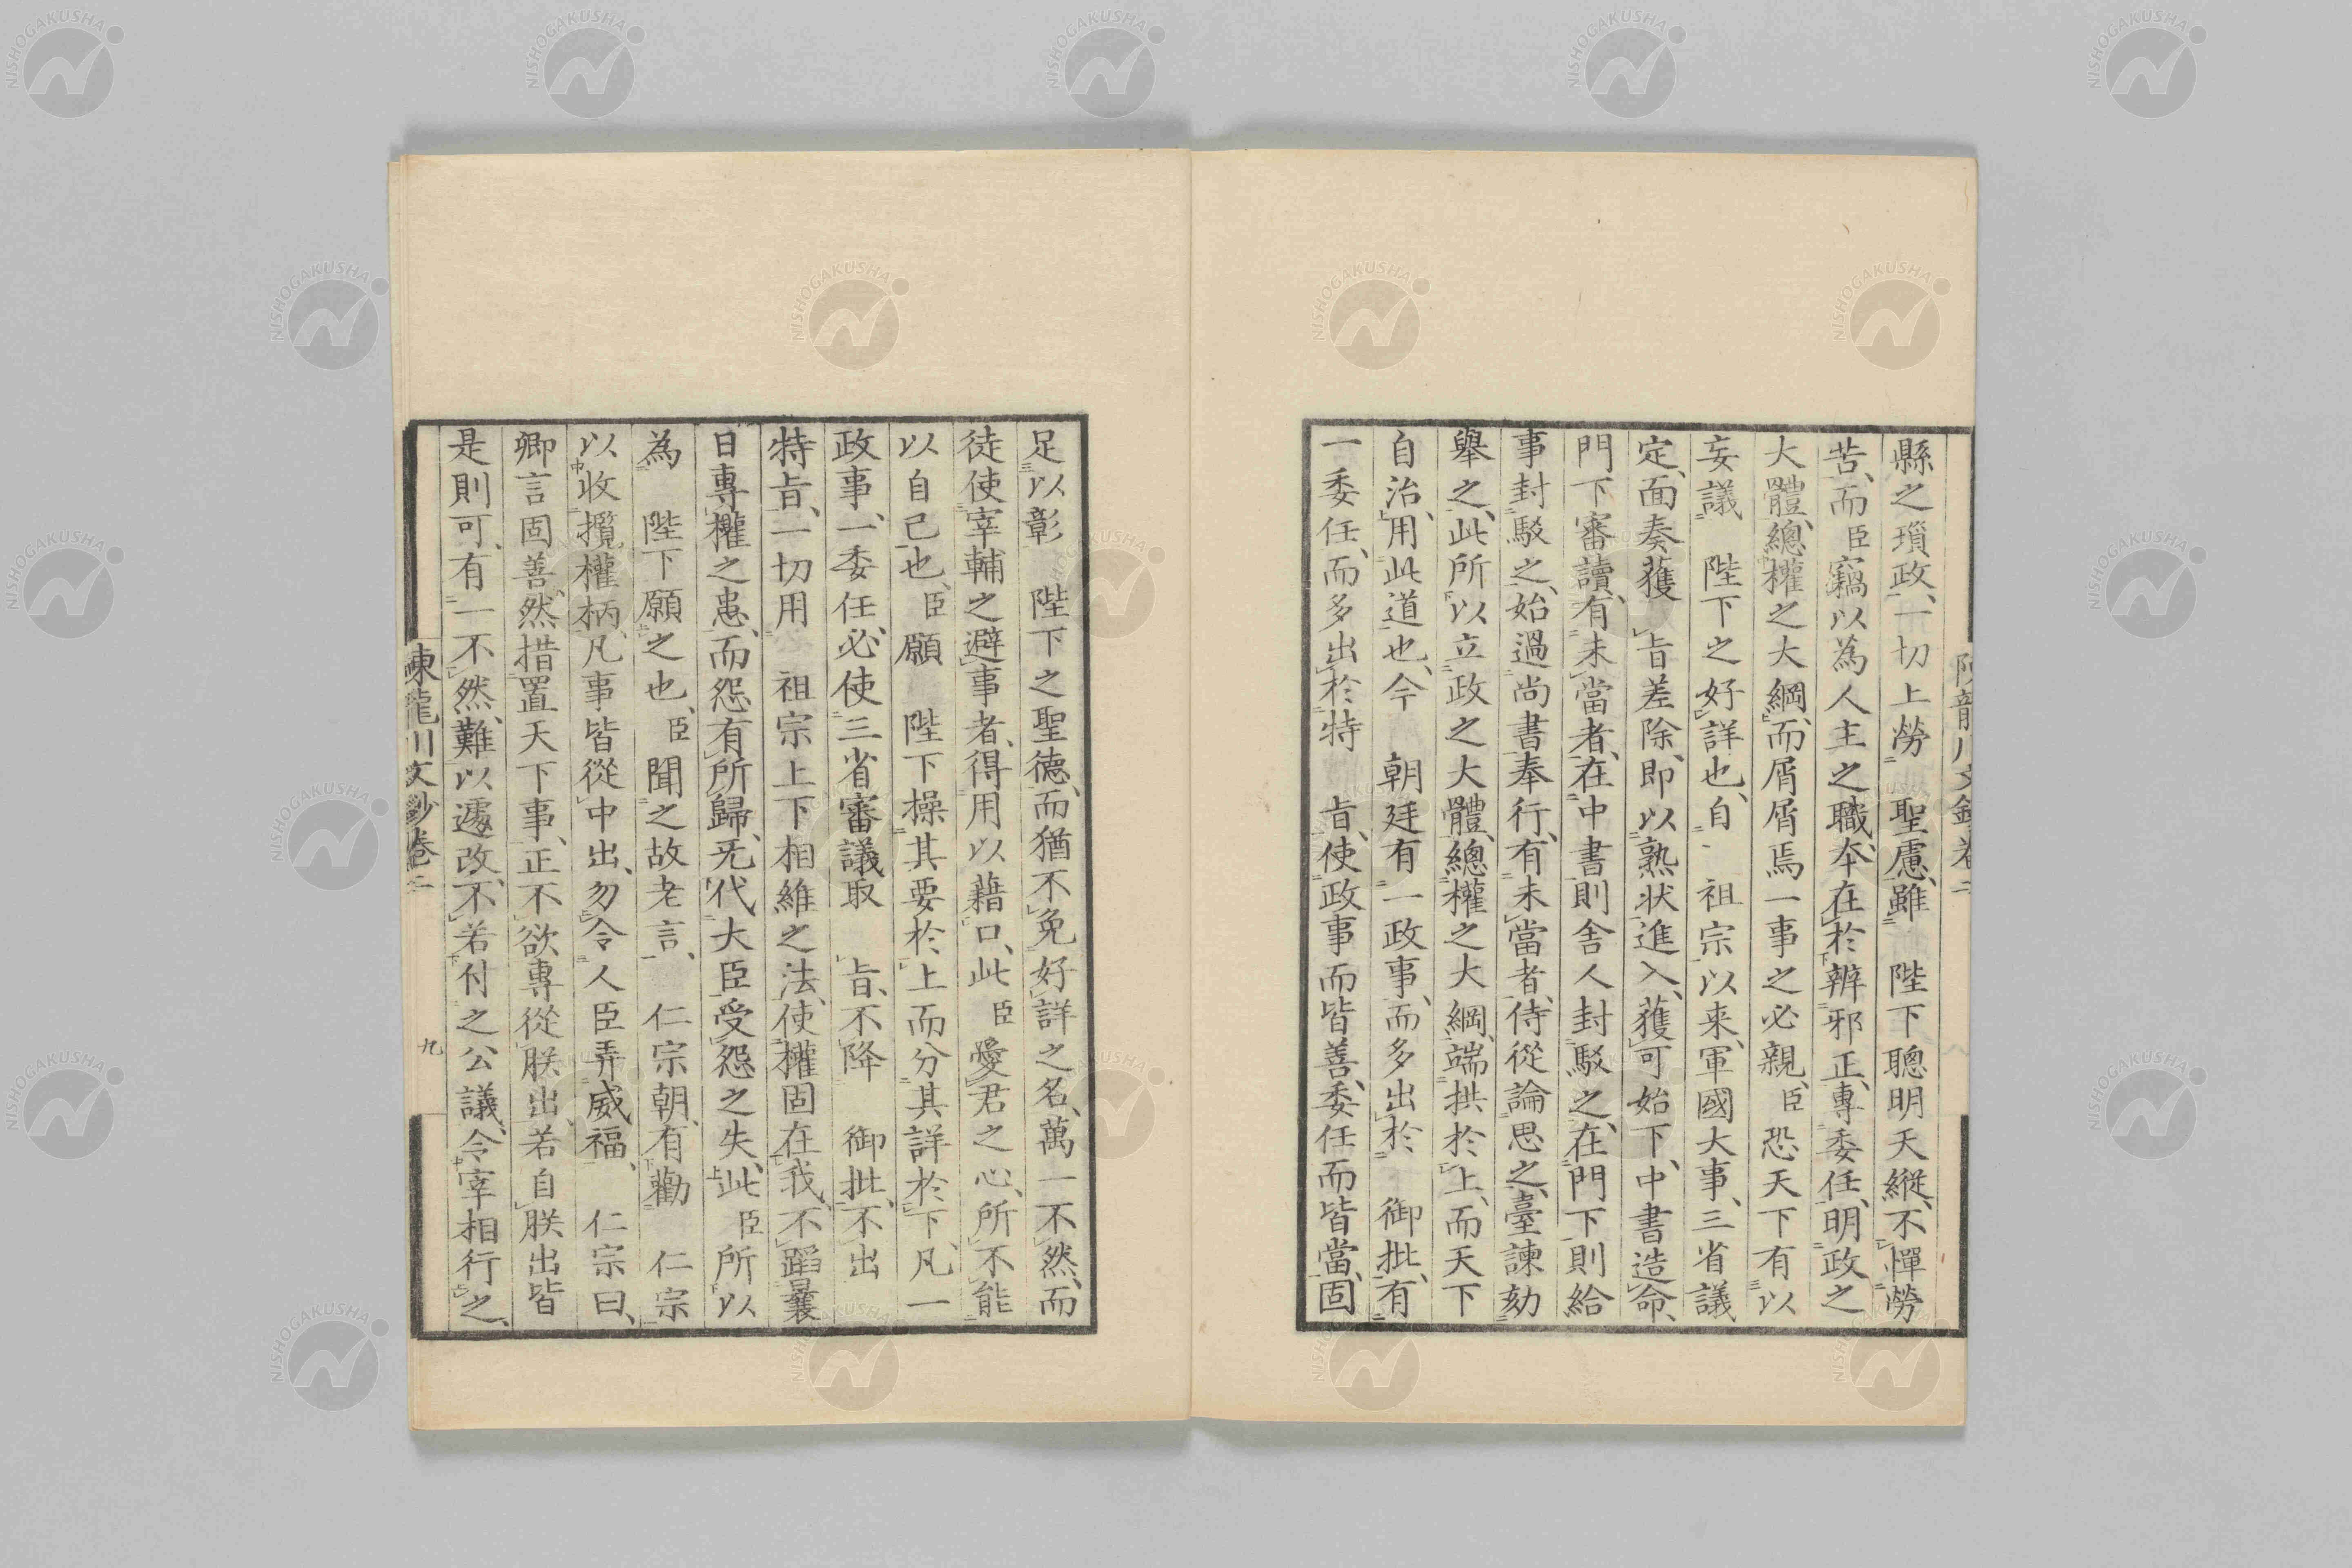 縣之瑣政、一切上勞　聖慮、雖　陛下聰明天縱、不憚勞
苦、而臣竊以為人主之職、本在於辨邪正、專委任、明政之
大體、總權之大綱、而屑屑焉一事之必親、臣恐天下有以
妄議　陛下之好詳也、自　祖宗以来、軍國大事、三省議
定、面奏獲　旨差除、即以熟狀進入、獲可始下、中書造命、
門下審讀、有未當者、在中書則舍人封駁之、在門下則給
事封駁之、始過尚書奉行、有未當者、侍從論思之、臺諫劾
舉之、此所以立政之大體、總權之大綱、端拱於上、而天下
自治、用此道也、今　朝廷有一政事、而多出於　御批、有
一委任、而多出於特　旨、使政事而皆善、委任而皆當、固
足以彰　陛下之聖德、而猶不免好詳之名、萬一不然、而
徒使宰輔之避事者、得用以藉口、此臣愛君之心、所不能
以自已也、臣願　陛下操其要於上而分其詳於下、凡一
政事、一委任、必使三省審議取　旨、不降　御批、不出
特旨、一切用　祖宗上下相維之法、使權固在我、不蹈曩
日專權之患、而怨有所歸、无代大臣受怨之失、此臣所以
為　陛下願之也、臣聞之故老言、仁宗朝、有勸　仁宗
以收攬權柄、凡事皆從中出、勿令人臣弄威福、　仁宗曰、
卿言固善、然措置天下事、正不欲專從朕出、若自朕出皆
是則可、有一不然、難以遽改、不若付之公議、令宰相行之、
陳龍川文鈔卷二
九